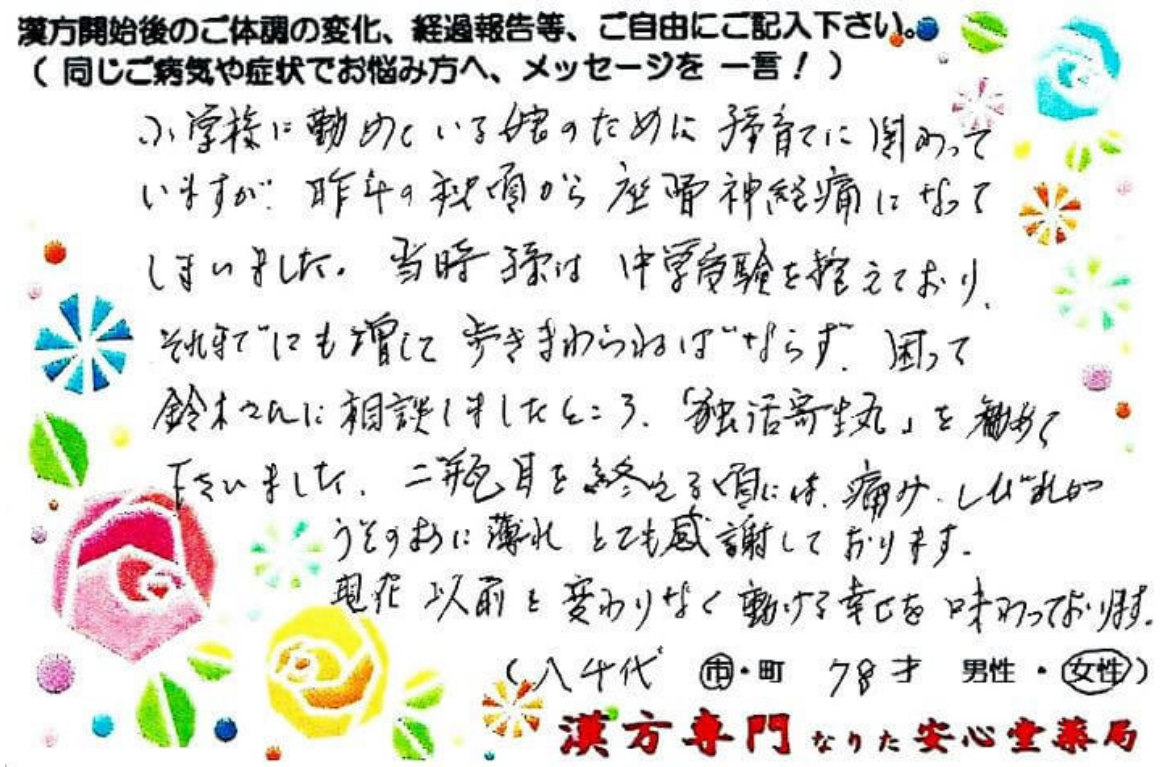 漢方開始後のご体調の変化、経過報告等、ご自由にご記入下さい。
(同じご病気や症状でお悩み方へ、メッセージを 一言!)
小学校に勤めている娘のために孫育てに関わって
いますが、昨年の秋頃から座骨神経痛になって
しまいました。当時孫は中学受験を控えており、
それまでにも増して歩きまわらねばならず、困って
鈴木さんに相談しましたところ、「独活寄生丸」を勧めて
下さいました。二瓶目を終える頃には、痛み、しびれが
うそのように薄れ とても感謝しております。
現在以前と変わりなく動ける幸せを味わっております。
(八千代 市・町 78才 男性・女性)
漢方専門 なりた 安心堂薬局